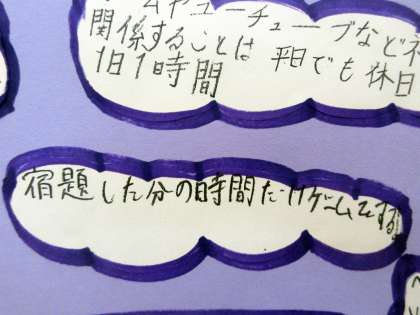 ムやユーチューブなど
関係することは 平日でも休日
1日1時間
宿題した分の時間だけゲームをする。